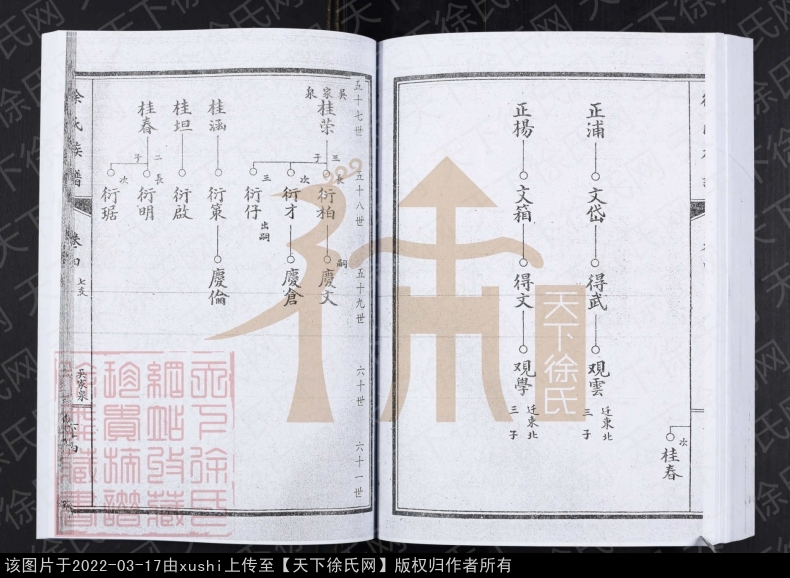 次
桂春
正浦
文岱
得武
观雲
迁東北
三子
正楊
文箱
得文
观學
迁東北
三子
五十七世
五十八世
五十九世
六十世
六十一世
吴家泉
桂荣
三子
長
衍柏
嗣
慶文
次
衍才
慶倉
三
衍仔
出嗣
桂涵
衍策
慶倫
桂坦
衍啟
桂春
二子
長
衍明
次
衍琚
余氏族譜
卷四
七支
天下徐氏
天下徐氏网
该图片于2022-03-17由xushi上传至【天下徐氏网】版权归作者所有